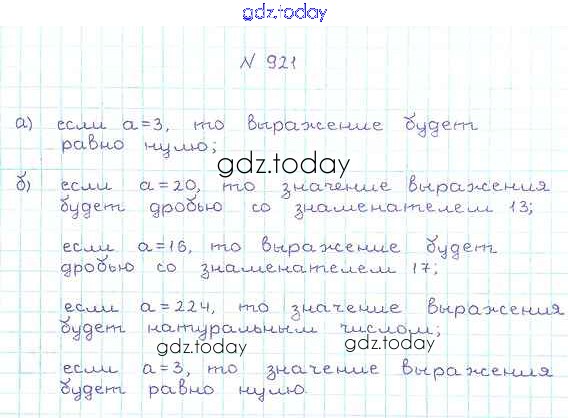 gdz.today
N 921
а) если а=3, то выражение будет
равно нулю;
gdz.today
б) если а=20, то значение выражения
будет дробью со знаменателем 13;
gdz.today
если а=16, то выражение будет
дробью со знаменателем 17;
если а=224, то значение выражения
будет натуральным числом;
gdz.today
если а=3, то значение выражения
будет равно нулю.
gdz.today